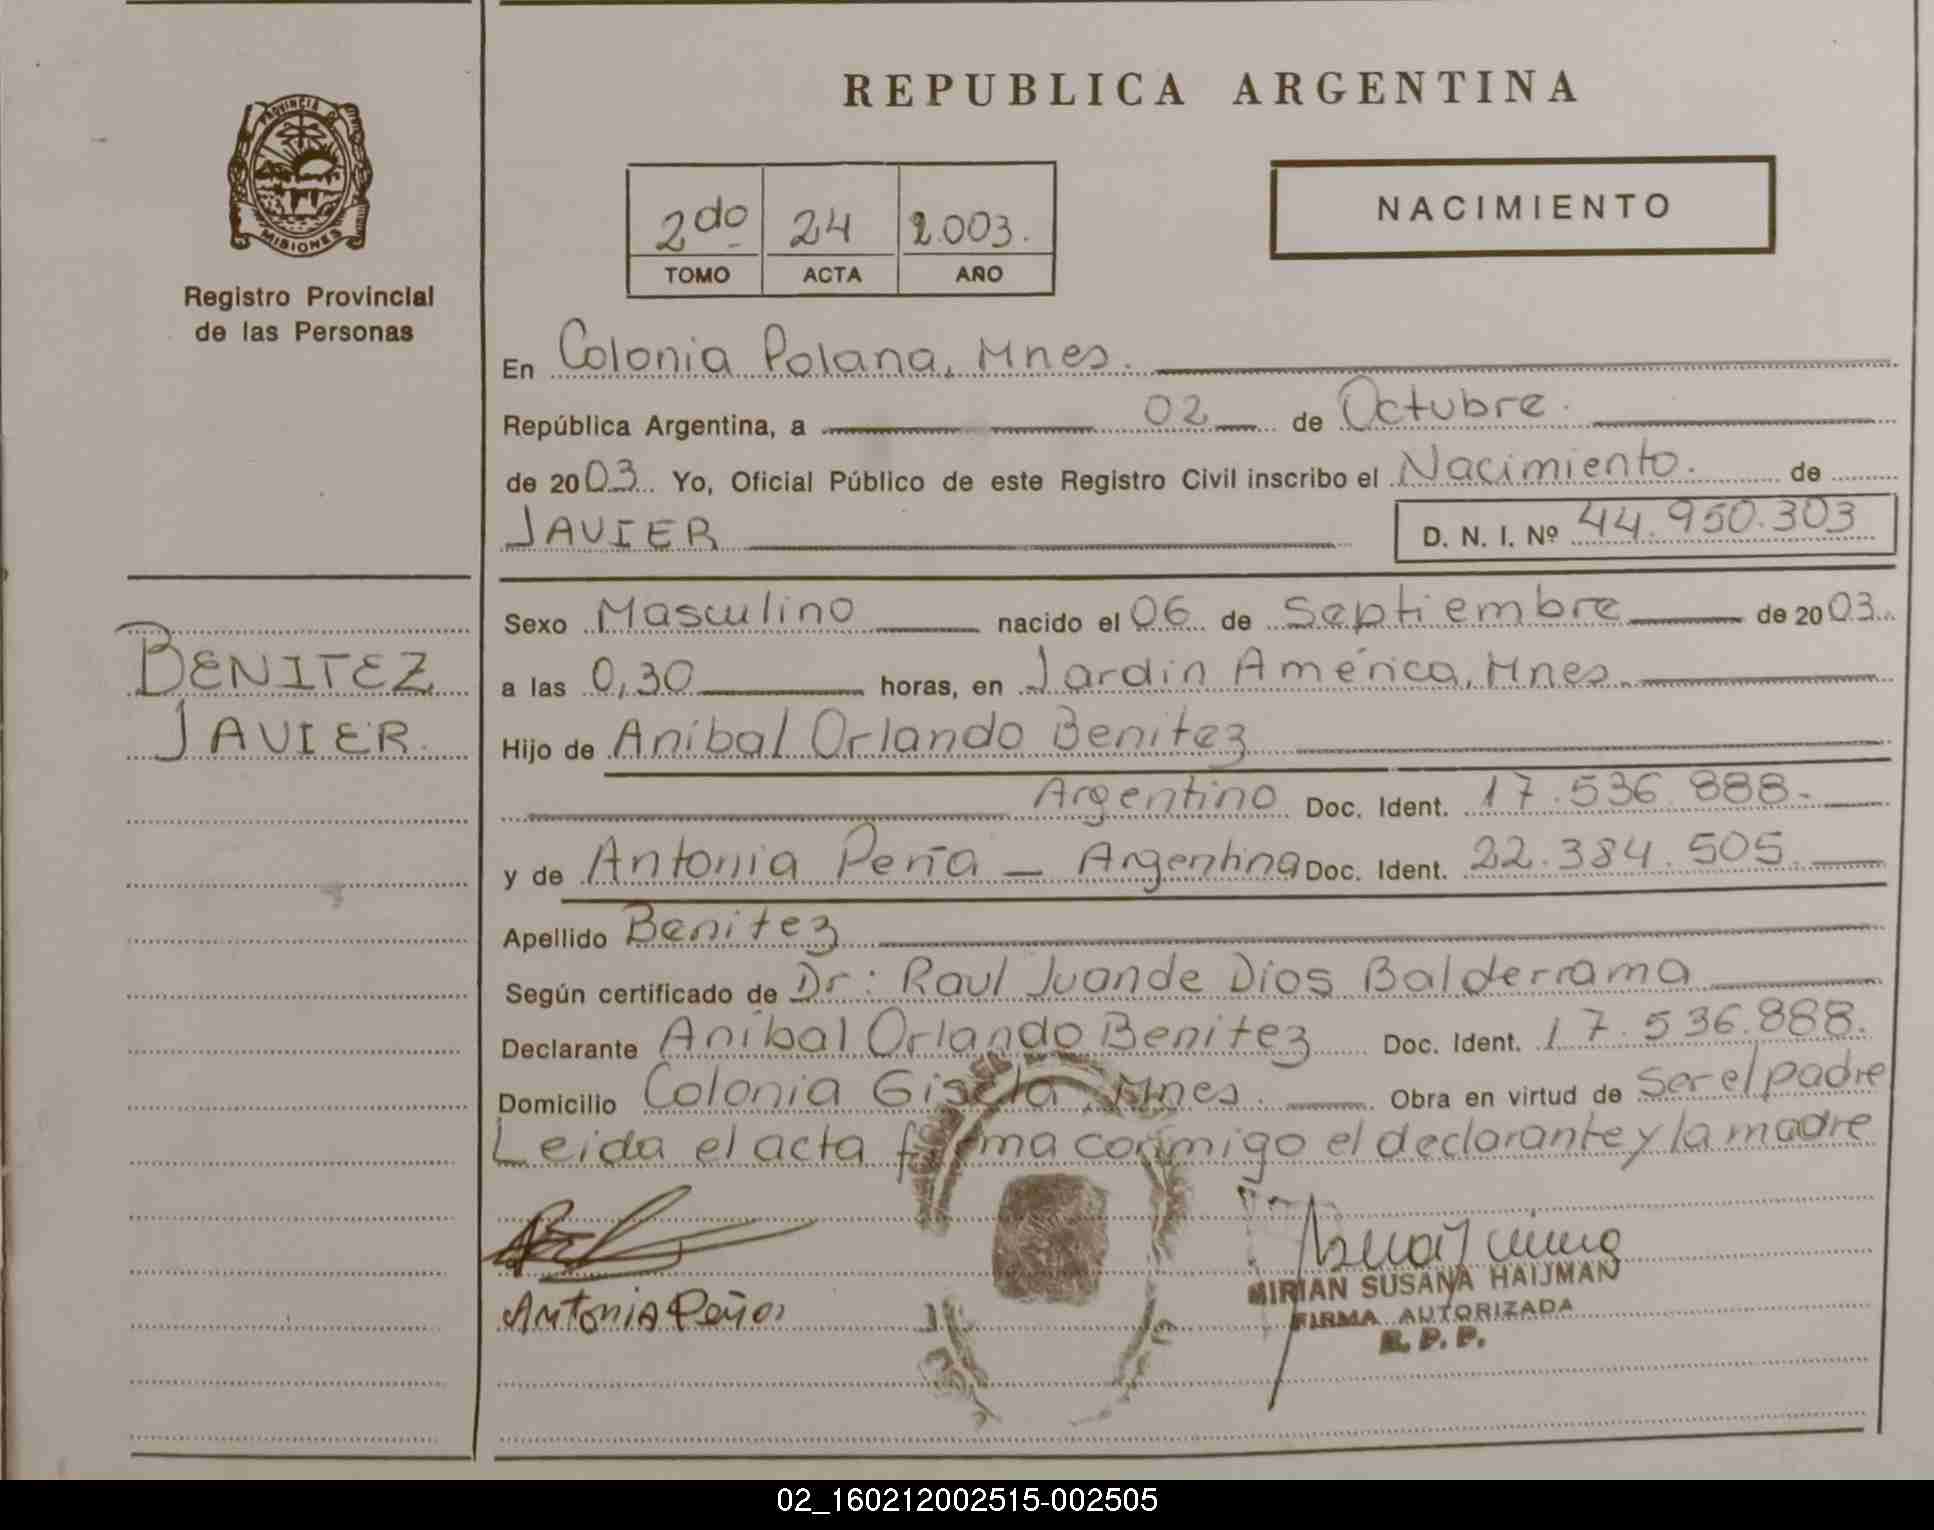 PROVINCIA DE
MISIONES
Registro Provincial
de las Personas
BENITEZ
JAVIER.
REPUBLICA ARGENTINA
2do 24 2.003.
TOMO ACTA AÑO
NACIMIENTO
En Colonia Polana, Mnes.
República Argentina, a 02 de Octubre.
de 2003 Yo, Oficial Público de este Registro Civil inscribo el Nacimiento. de
JAVIER D. N. I. Nº 44.950.303
Sexo Masculino nacido el 06 de Septiembre de 2003.
a las 0,30 horas, en Jardín América, Mnes.
Hijo de Aníbal Orlando Benitez
Argentino Doc. Ident. 17.536.888.
y de Antonia Peña - Argentina Doc. Ident. 22.384.505.
Apellido Benitez
Según certificado de Dr: Raul Juan de Dios Balderrama
Declarante Aníbal Orlando Benitez Doc. Ident. 17.536.888.
Domicilio Colonia Gisela, Mnes. Obra en virtud de ser el padre
Leida el acta firma conmigo el declarante y la madre
Antonia Peña
MIRIAN SUSANA HAIJMAN
FIRMA AUTORIZADA
R. P. P.
02_160212002515-002505